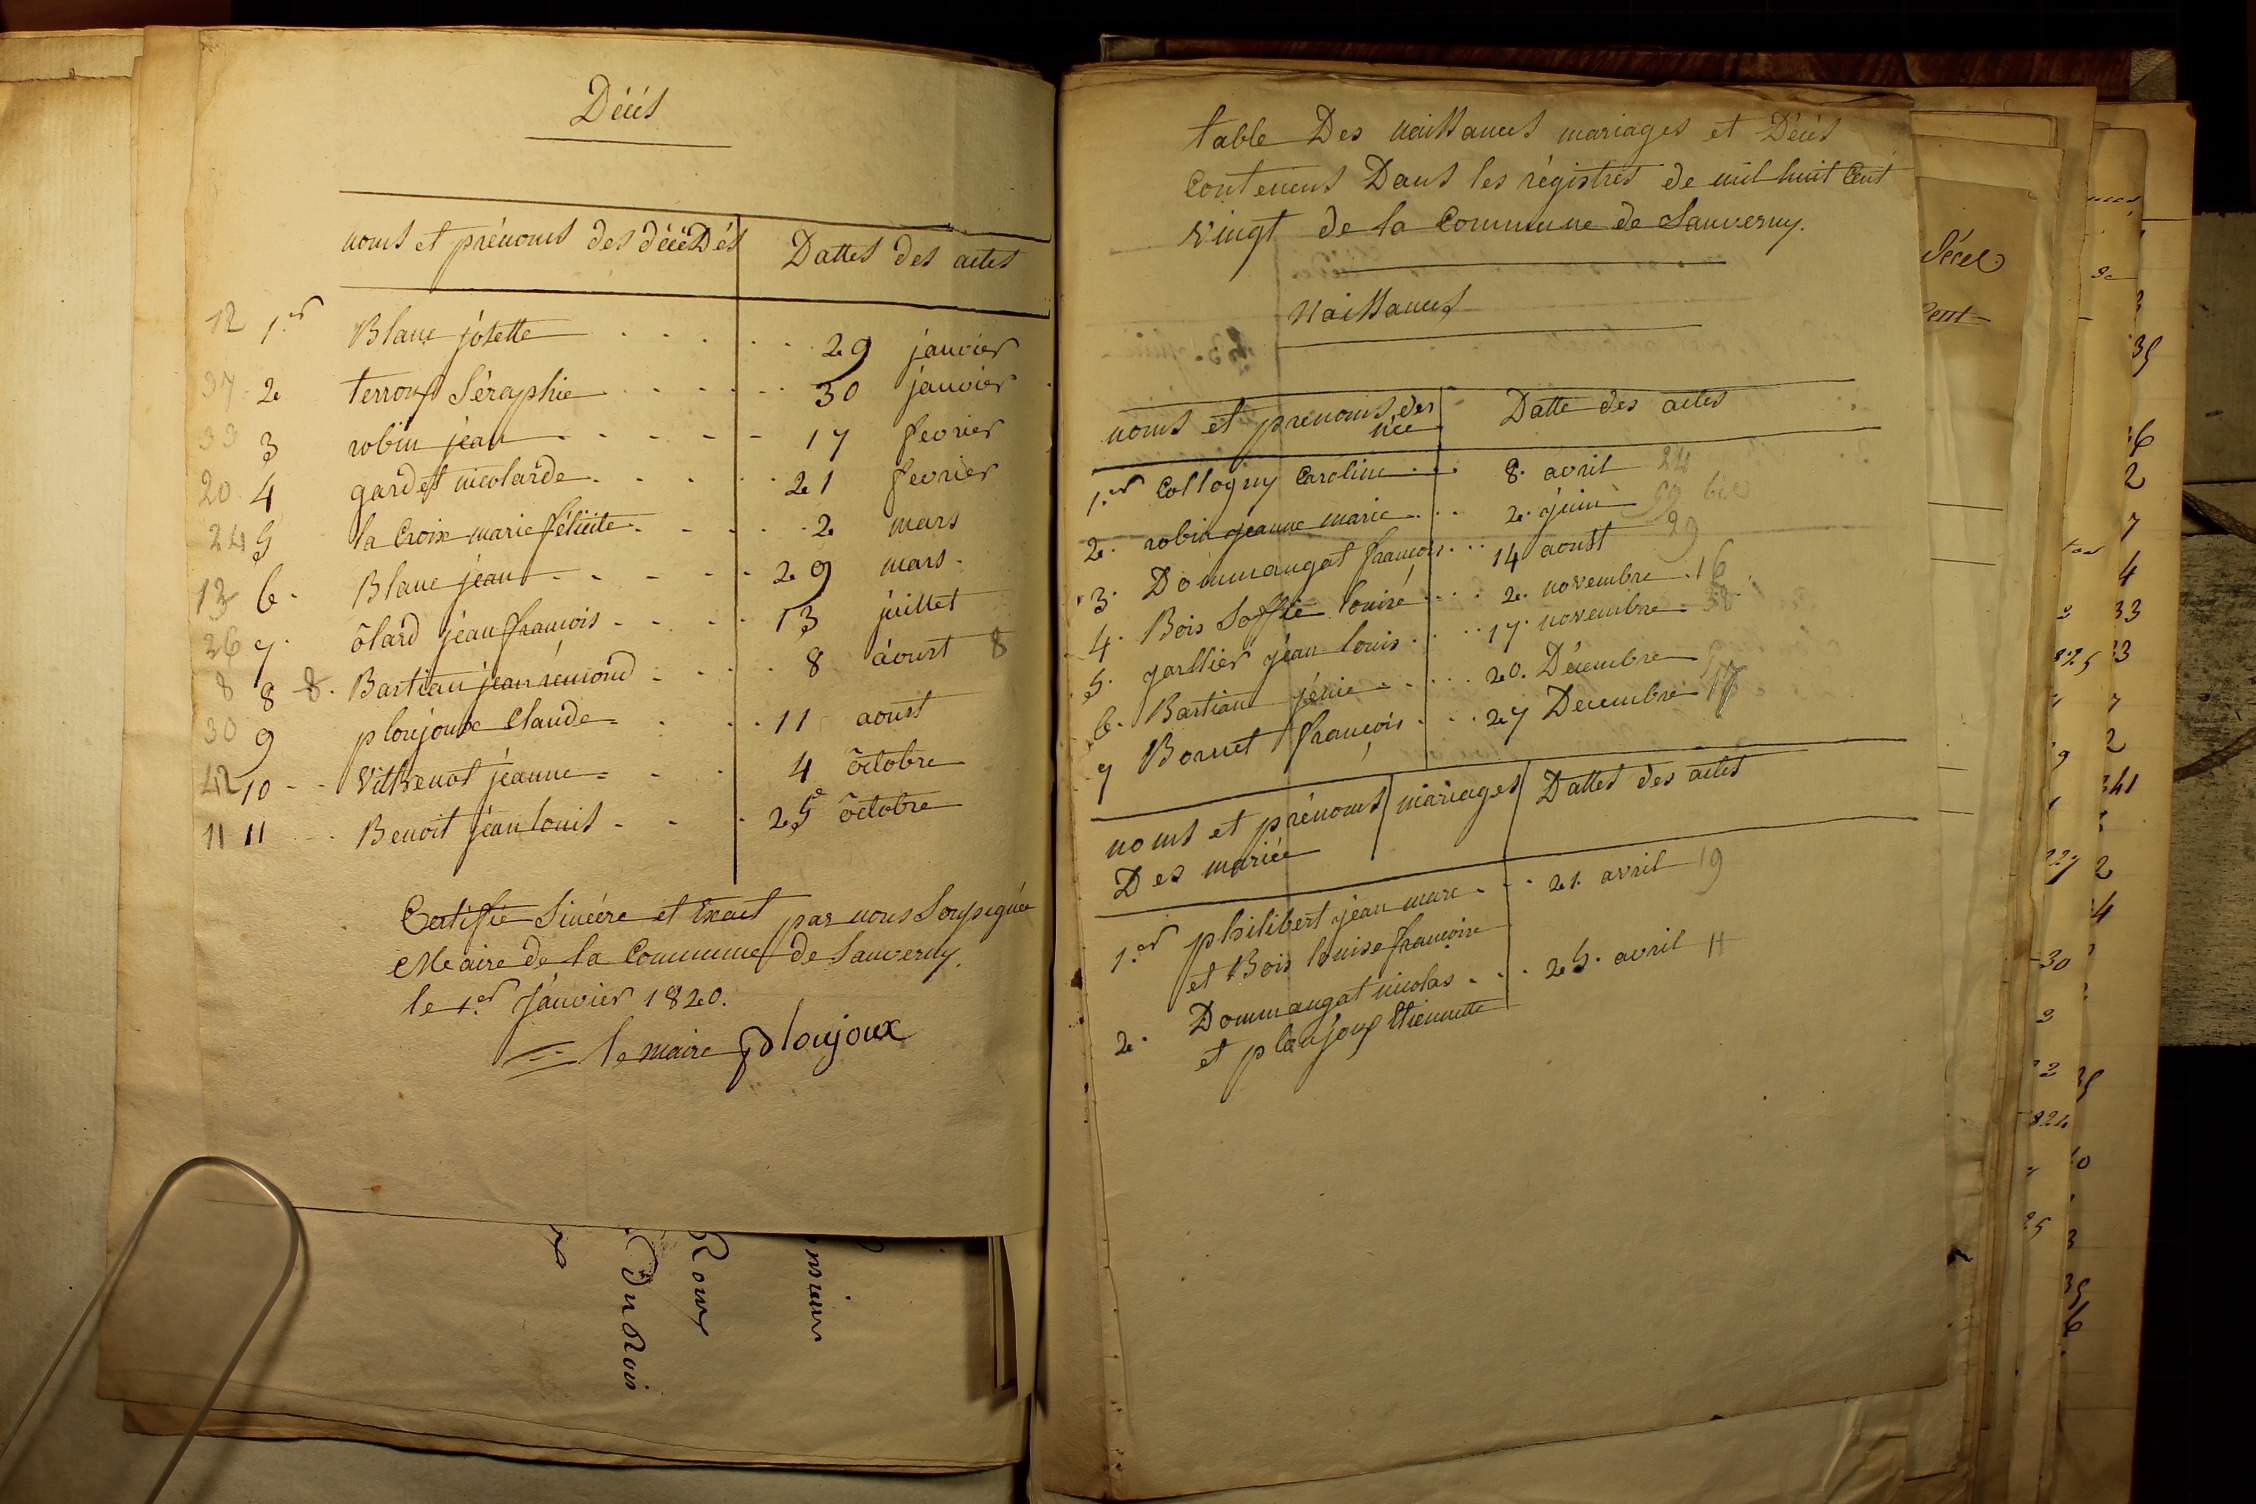 Décés
noms et prénoms des décèDés Dattes des actes
12 1.er Blanc josette 29 janvier
37 2 terroux Séraphie 30 janvier
33 3 robin jean 17 fevrier
20 4 gardet nicolarde 21 fevrier
24 5 la Croix marie félicite 2 mars
13 6 Blanc jean 29 mars
26 7 ôlard jean francois 13 juillet
8 8 8 Bastian jean rémond 8 áoust 8
30 9 ploujoux Claude 11 aoust
42 10 Vuthenot jeanne 4 öctobre
11 11 Benoit jean louis 25 öctobre
Certifié Sincère et Exact par nous Soussigné
Maire de la Commune de Sauverny.
le 1.er Janvier 1820.
le maire Ploujoux
table Des naissances mariages et Décés
Contenens Dans les régistres de mil huit Cent
vingt de la Commune de Sauverny.
Naissances
noms et prenoms des Datte des actes
née
1.er Collogny Caroline 8. avril 24
2. robin jeanne marie 2. juin bis
3. Dommangat francois 14 aoust 29
4. Bois Soffie louise 2. novembre 16
5. jarllier jean louis 17. novembre 38
6. Bastian jenie 20. Décembre
7 Bornet françois 27 Decembre 17
noms et prénoms mariages Dattes des actes
Des mariée
1.er philibert jean marc 21. avril 19
et Bois louise francoise
2. Dommangat nicolas 25. avril 11
et ploujoux Etiennette
Décés
Cent
Roux
Du Rois